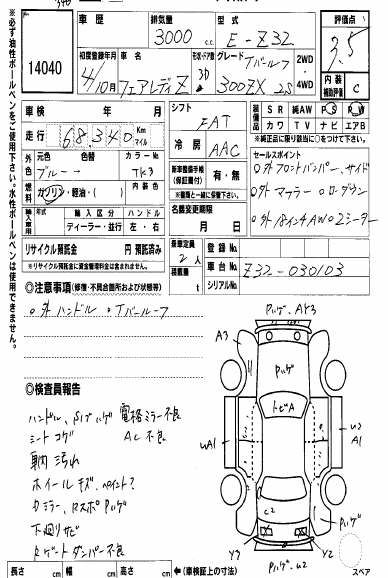 車歴
排気量
3000 c.c.
型式
E-Z32
評価点
3.5
14040
初度登録年月
4/10月
車名
フェアレディZ
形状・ドア数
3D
グレード Tバールーフ
300ZX 2S
2WD・4WD
内装補助評価
C
※必ず油性ボールペンをご使用下さい。水性ボールペンは使用できません。
車検 年 月
走行 68,340 Km マイル
シフト
FAT
冷房
AAC
装備品
SR 純AW PS PW
カワ TV ナビ エアB
※純正品に限り該当に○をつけて下さい。
外色
元色 色替
ブルー→
カラーNo.
TK3
燃料
ガソリン・軽油・( )
内装色
新車整備手帳(保証書付)
有・無
輸入車用
年式
輸入区分
ディーラー・並行
ハンドル
左・右
名義変更期限
月 日
セールスポイント
○外フロントバンパー、サイド
○外マフラー ○ローダウン
○外18インチAW○2シーター
リサイクル預託金 円 預託済み
※リサイクル預託金に資金管理料金は含まれません。
乗車定員
2人
積載量
t
登録No.
車台No.
Z32-030103
シリアルNo.
◎注意事項(修復・不具合箇所および状態等)
○外ハンドル ○Tバールーフ
◎検査員報告
ハンドル、Sノブハゲ 電格ミラー不良
シートコゲ AC不良
車内汚れ
ホイールキズ、ペイント?
Dミラー、Rスポハゲ
下廻りサビ
Rゲートダンパー不良
ハゲ、AY3
A3
ハゲ
トビA
UA1
U2
A1
C2
ハゲ
Y3
Y2
ハゲ、U2
長さ cm 幅 cm 高さ cm ←(車検証上の寸法)
スペア